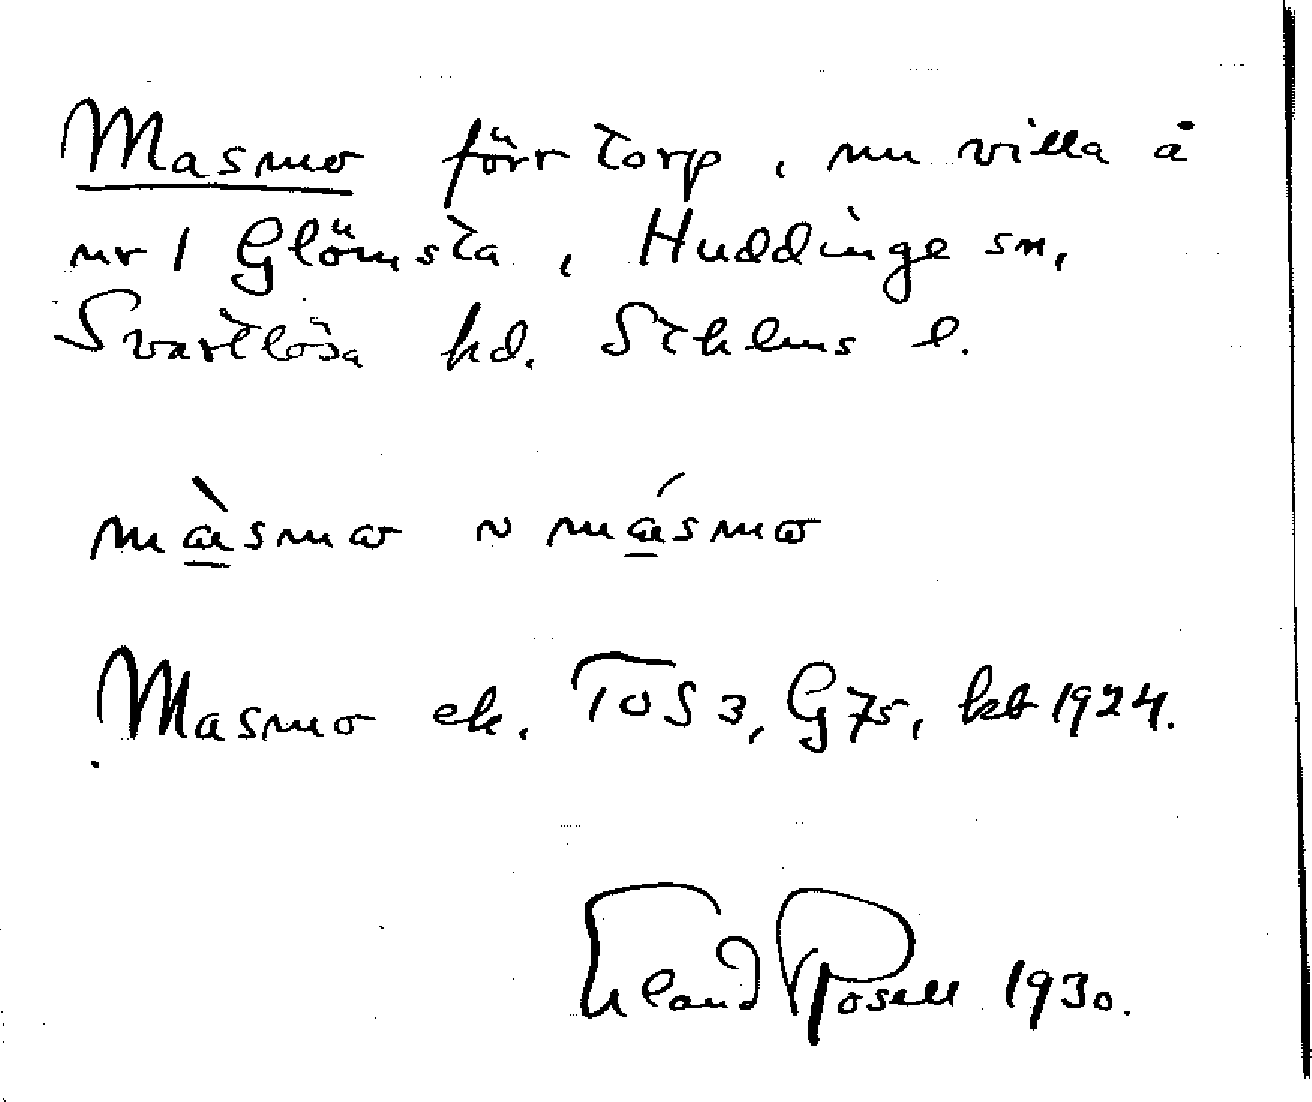 Masmo förr torp, nu villa å
nr 1 Glömsta, Huddinge sn,
Svartlösa hd. Sthlms l.
màsmo ~ másmo
Masmo ek. ToS 3, G 75, kb 1924.
Erland Rosell 1930.